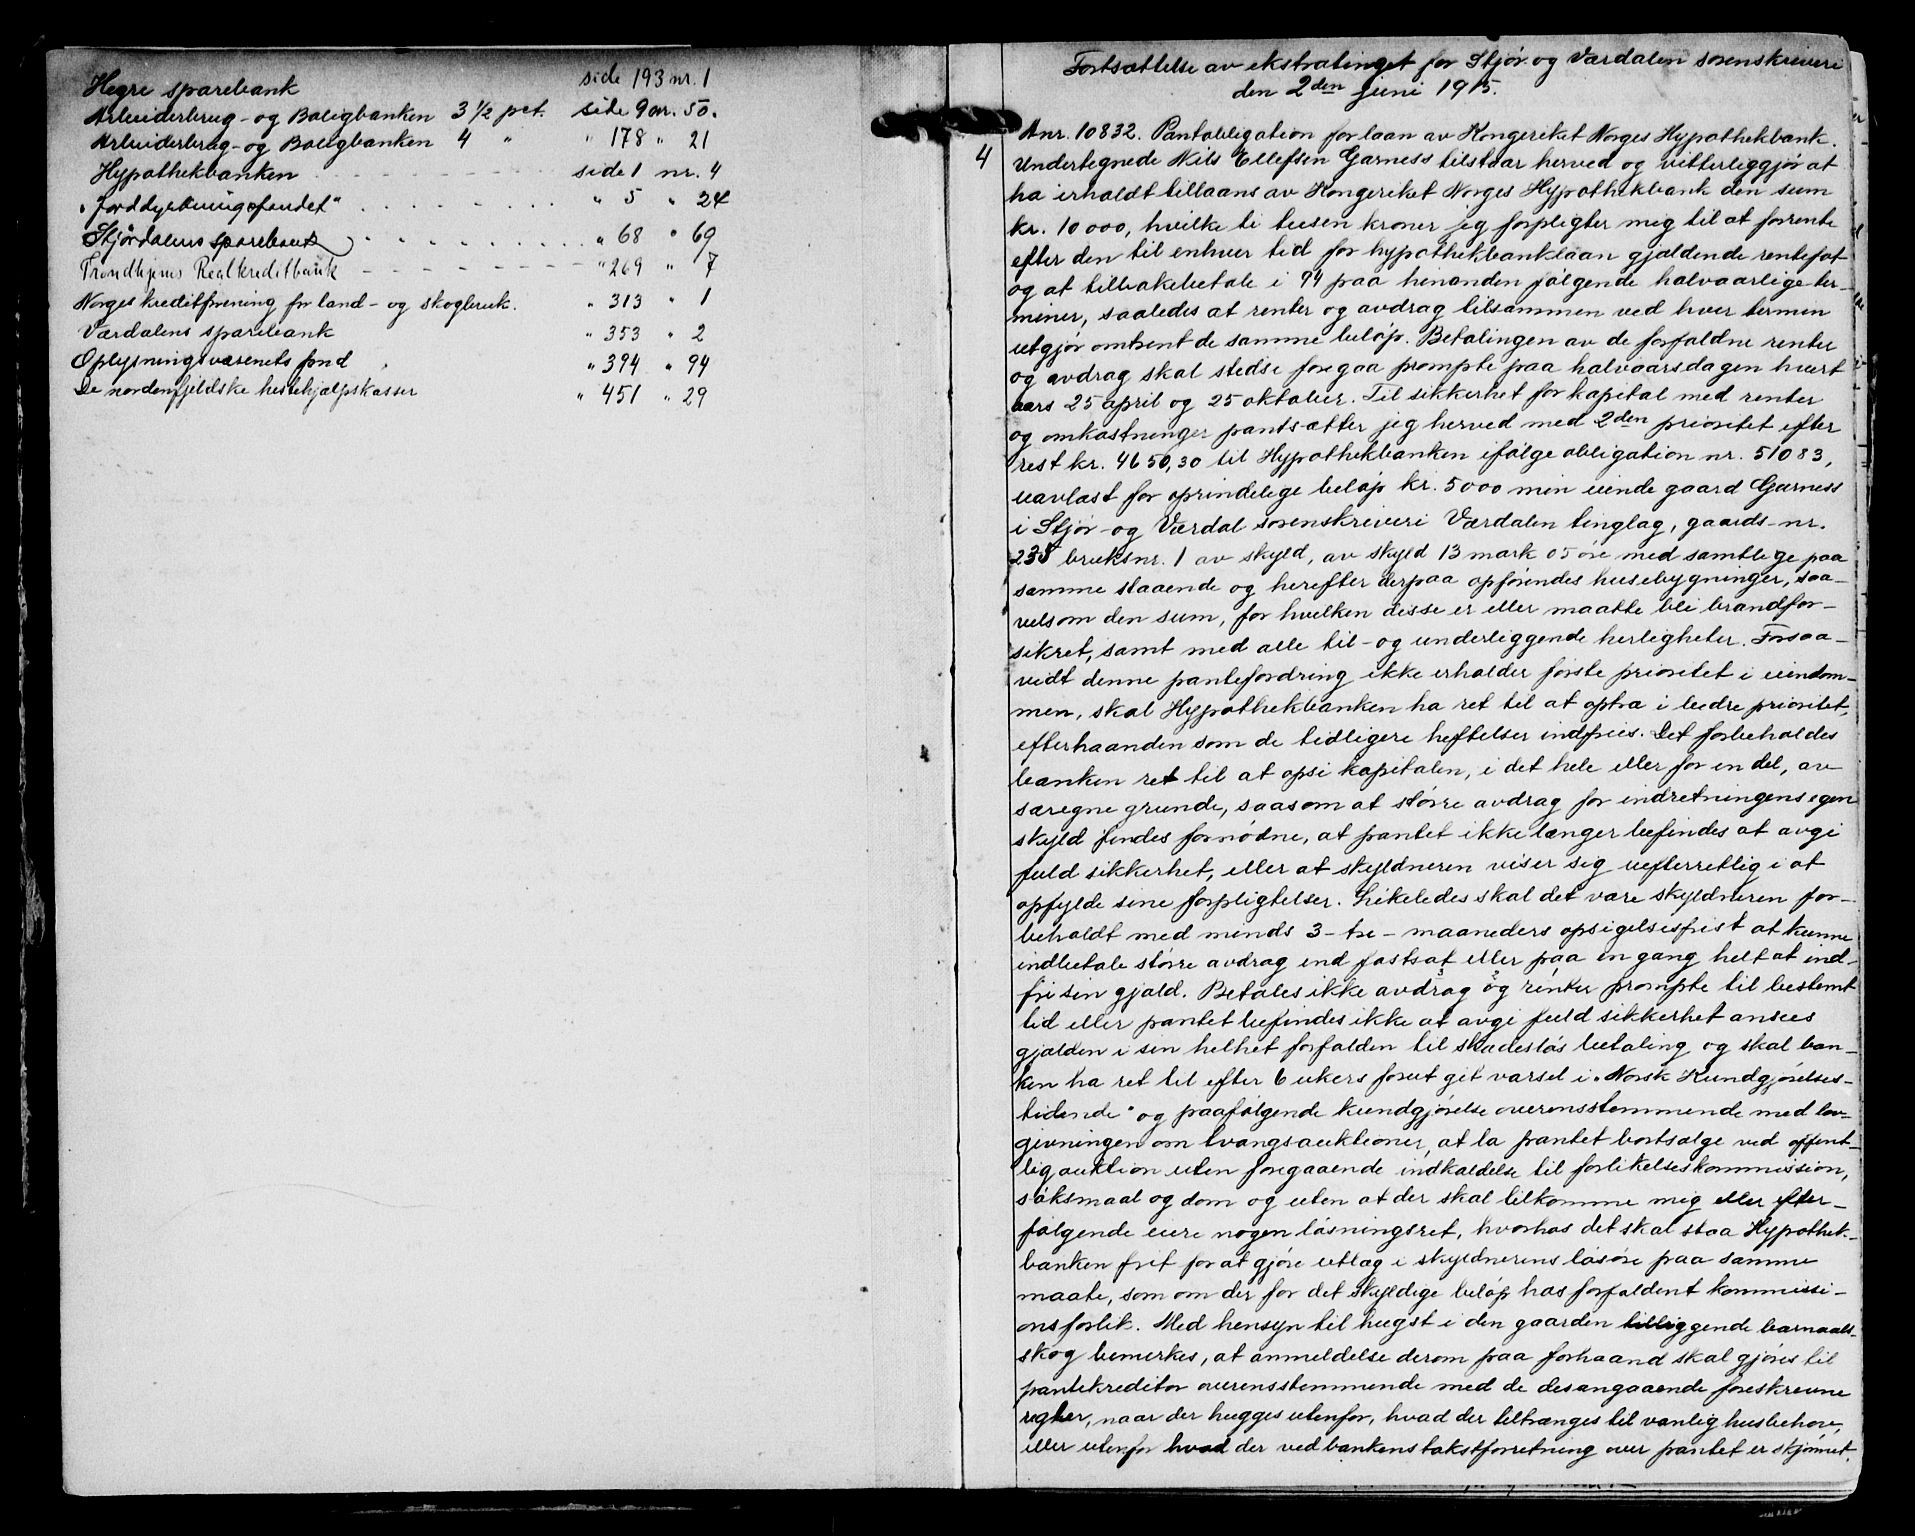 Hegre sparebank side 193 nr. 1
Arbeiderbrug- og Boligbanken 3 1/2 pct. side 9 nr. 50.
Arbeiderbrug- og Boligbanken 4 " " 178 " 21
Hypothekbanken side 1 nr. 4
"Jorddyrkningsfondet" " 5 " 24
Stjørdalens sparebank " 68 " 69
Trondhjems Realkreditbank " 269 " 7
Norges kreditforening for land- og skogbruk. " 313 " 1
Værdalens sparebank " 353 " 2
Oplysningsvæsenets fond " 394 " 94
De nordenfjeldske hestehjælpskasser " 451 " 29
Fortsættelse av ekstratinget for Stjør og Værdalen sorenskriveri
den 2den juni 1915.
Anr. 10832. Pantobligation for laan av Kongeriket Norges Hypothekbank.
4 Undertegnede Nils Ellefsen Garness tilstaar herved og vitterliggjør at
ha erholdt tillaans av Kongeriket Norges Hypothekbank den sum
kr. 10 000, hvilke ti tusen kroner jeg forpligter mig til at forrente
efter den til enhver tid for hypothekbanklaan gjældende rentefot
og at tilbakebetale i 94 paa hinanden følgende halvaarlige ter-
miner, saaledes at renter og avdrag tilsammen ved hver termin
utgjør omtrent de samme beløp. Betalingen av de forfaldne renter
og avdrag skal stedse foregaa prompte paa halvaarsdagen hvert
aars 25 april og 25 oktober. Til sikkerhet for kapital med renter
og omkostninger pantsætter jeg herved med 2den prioritet efter
rest kr. 4650,30 til Hypothekbanken ifølge obligation nr. 51083,
uavlæst for oprindelige beløp kr. 5000 min eiende gaard Garness
i Stjør- og Værdal sorenskriveri Værdalen tinglag, gaards-nr.
235 bruksnr. 1 av skyld, av skyld 13 mark 05 øre med samtlige paa
samme staaende og herefter derpaa opførendes husebygninger, saa-
velsom den sum, for hvilken disse er eller maatte bli brandfor-
sikret, samt med alle til- og underliggende herligheter. Forsaa-
vidt denne pantefordring ikke erholder første prioritet i eiendom-
men, skal Hypothekbanken ha ret til at optræ i bedre prioritet,
efterhaanden som de tidligere heftelser indfries. Det forbeholdes
banken ret til at opsi kapitalen, i det hele eller for en del, av
særegne grunde, saasom at større avdrag for indretningens egen
skyld findes fornødne, at pantet ikke længer befindes at avgi
fuld sikkerhet, eller at skyldneren viser sig uefterrettlig i at
opfylde sine forpligtelser. Likeledes skal det være skyldneren for-
beholdt med minds 3- tre - maaneders opsigelsesfrist at kunne
indbetale større avdrag end fastsat eller paa en gang helt at ind-
fri sin gjæld. Betales ikke avdrag og renter prompte til bestemt
tid eller pantet befindes ikke at avgi fuld sikkerhet ansees
gjælden i sin helhet forfalden til skadesløs betaling og skal ban-
ken ha ret til efter 6 ukers forut git varsel i "Norsk Kundgjørelses-
tidende" og paafølgende kundgjørelse overensstemmende med lov-
givningen om tvangsauktioner, at la pantet bortsælge ved offent-
lig auktion uten foregaaende indkaldelse til forlikelseskommission,
søksmaal og dom og uten at der skal tilkomme mig eller efter-
følgende eiere nogen løsningsret, hvorhos det skal staa Hypothek-
banken frit for at gjøre utlæg i skyldnerens løsøre paa samme
maate, som om der for det skyldige beløp has forfaldent kommissi-
onsforlik. Med hensyn til hugst i den gaarden tilliggende barnaals-
skog bemerkes, at anmeldelse derom paa forhaand skal gjøres til
pantekreditor overensstemmende med de desangaaende foreskrevne
regler, naar der hugges utenfor, hvad der tiltrænges til vanlig husbehov,
eller utenfor hvad der ved bankens takstforretning over pantet er skjønnet.